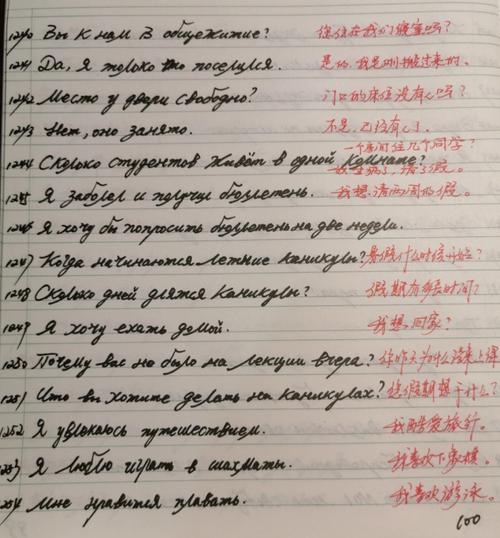 1240 Вы к нам в общежитие? 您住在我们寝室吗?
1241 Да, я только что поселился. 是的,我是刚搬过来的。
1242 Место у двери свободно? 门口的床位没有人吗?
1243 Нет, оно занято. 不是,已经有人了。
1244 Сколько студентов живёт в одной комнате? 一个房间住几个同学?
1245 Я заболел и получил бюллетень. 我生病了,请了假。
1246 Я хочу бы попросить бюллетень на две недели. 我想请两周的假。
1247 Когда начинаются летние каникулы? 暑假什么时候开始?
1248 Сколько дней длятся каникулы? 假期有多长时间?
1249 Я хочу ехать домой. 我想回家?
1250 Почему вас не было на лекции вчера? 你昨天为什么没来上课
1251 Что вы хотите делать на каникулах? 您假期想干什么?
1252 Я увлекаюсь путешествием. 我酷爱旅行。
1253 Я люблю играть в шахматы. 我喜欢下象棋。
1254 Мне нравится плавать. 我喜欢游泳。
100